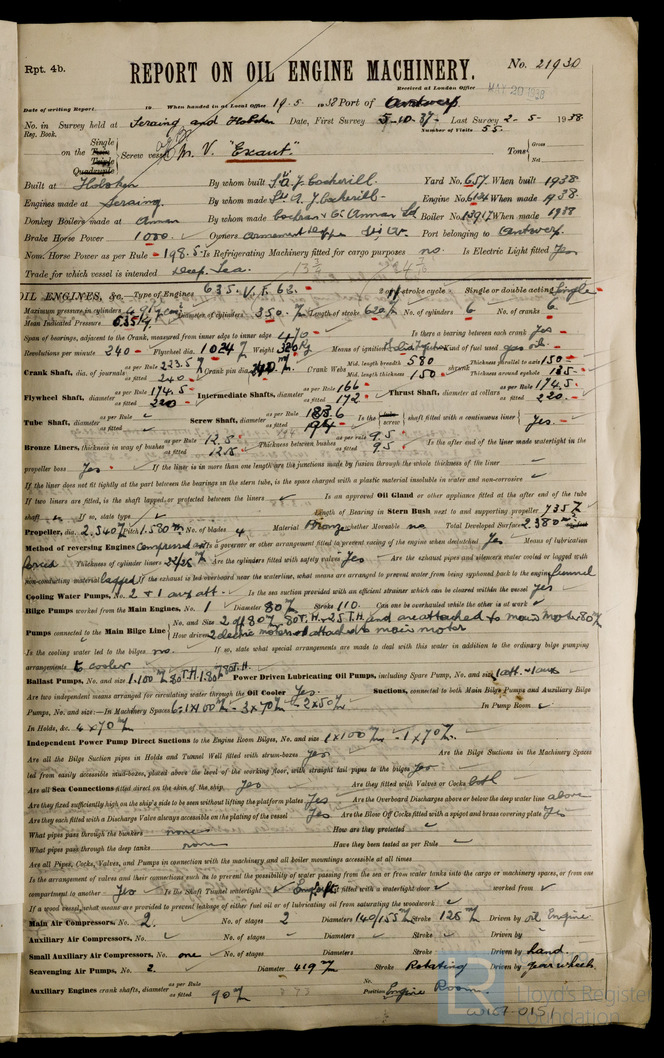 Rpt. 4b.
REPORT ON OIL ENGINE MACHINERY.
No. 21930
Received at London Office MAY 20 1938
Date of writing Report. 19 When handed in at Local Office 19.5.1938 Port of Antwerp
No. in Survey held at Seraing and Hoboken Date, First Survey 5-10-37 Last Survey 2-5-1938
Reg. Book. Number of Visits 55
Single
on the Twin Screw vessel M.V. "Exaut" Tons Gross
Triple Net
Quadruple
Built at Hoboken By whom built Sté A. J. Cockerill Yard No. 657 When built 1938
Engines made at Seraing By whom made Sté A. J. Cockerill Engine No. When made 1938
Donkey Boilers made at Annan By whom made Cochran & Co Annan Ld Boiler No. When made 1938
Brake Horse Power 1000 Owners Port belonging to Antwerp
Nom. Horse Power as per Rule 198.5 Is Refrigerating Machinery fitted for cargo purposes no Is Electric Light fitted Yes
Trade for which vessel is intended Deep Sea
OIL ENGINES, &c. Type of Engines 2 or 4 stroke cycle Single or double acting Single
Maximum pressure in cylinders Diameter of cylinders 350 Length of stroke 620 No. of cylinders 6 No. of cranks 6
Mean Indicated Pressure
Span of bearings, adjacent to the Crank, measured from inner edge to inner edge 470 Is there a bearing between each crank Yes
Revolutions per minute 240 Flywheel dia. 1024 Weight Means of ignition Kind of fuel used gas oil
Crank Shaft, dia. of journals as per Rule 223.5 as fitted 240 Crank pin dia. 240 Crank Webs Mid. length breadth 580 Mid. length thickness 150 shrunk Thickness parallel to axis 150 Thickness around eyehole 135
Flywheel Shaft, diameter as per Rule 174.5 as fitted 220 Intermediate Shafts, diameter as per Rule 166 as fitted 172 Thrust Shaft, diameter at collars as per Rule 174.5 as fitted 220
Tube Shaft, diameter as per Rule as fitted Screw Shaft, diameter as per Rule as fitted 194 Is the tube screw shaft fitted with a continuous liner Yes
Bronze Liners, thickness in way of bushes as per Rule 12.5 as fitted Thickness between bushes as per rule 9.5 as fitted 9.5 Is the after end of the liner made watertight in the
propeller boss Yes If the liner is in more than one length are the junctions made by fusion through the whole thickness of the liner
If the liner does not fit tightly at the part between the bearings in the stern tube, is the space charged with a plastic material insoluble in water and non-corrosive
If two liners are fitted, is the shaft lapped or protected between the liners Is an approved Oil Gland or other appliance fitted at the after end of the tube
shaft If so, state type Length of Bearing in Stern Bush next to and supporting propeller 735
Propeller, dia. 2.540 Pitch 1.580 No. of blades 4 Material Bronze whether Moveable no Total Developed Surface 2.380
Method of reversing Engines compressed air Is a governor or other arrangement fitted to prevent racing of the engine when declutched Yes Means of lubrication
forced Thickness of cylinder liners Are the cylinders fitted with safety valves Yes Are the exhaust pipes and silencers water cooled or lagged with
non-conducting material lagged If the exhaust is led overboard near the waterline, what means are arranged to prevent water from being syphoned back to the engine funnel
Cooling Water Pumps, No. 2 & 1 aux att. Is the sea suction provided with an efficient strainer which can be cleared within the vessel Yes
Bilge Pumps worked from the Main Engines, No. 1 Diameter 80 Stroke 110 Can one be overhauled while the other is at work
Pumps connected to the Main Bilge Line No. and Size 2 of 80 T.H. + 25 T.H. and are attached to main motor 80
How driven 2 electric motors & attached to main motor
Is the cooling water led to the bilges no If so, state what special arrangements are made to deal with this water in addition to the ordinary bilge pumping
arrangements to cooler
Ballast Pumps, No. and size 1.100 80 T.H. 1.80 78 T.H. Power Driven Lubricating Oil Pumps, including Spare Pump, No. and size 1 att. - 1 aux
Are two independent means arranged for circulating water through the Oil Cooler Yes Suctions, connected to both Main Bilge Pumps and Auxiliary Bilge
Pumps, No. and size:— In Machinery Spaces 6-1x100 - 3x70 - 2x50 In Pump Room
In Holds, &c. 4 x 70
Independent Power Pump Direct Suctions to the Engine Room Bilges, No. and size 1x100 - 1x70
Are all the Bilge Suction pipes in Holds and Tunnel Well fitted with strum-boxes Yes Are the Bilge Suctions in the Machinery Spaces
led from easily accessible mud-boxes, placed above the level of the working floor, with straight tail pipes to the bilges Yes
Are all Sea Connections fitted direct on the skin of the ship Yes Are they fitted with Valves or Cocks both
Are they fixed sufficiently high on the ship's side to be seen without lifting the platform plates Yes Are the Overboard Discharges above or below the deep water line above
Are they each fitted with a Discharge Valve always accessible on the plating of the vessel Yes Are the Blow Off Cocks fitted with a spigot and brass covering plate Yes
What pipes pass through the bunkers none How are they protected
What pipes pass through the deep tanks none Have they been tested as per Rule
Are all Pipes, Cocks, Valves, and Pumps in connection with the machinery and all boiler mountings accessible at all times
Is the arrangement of valves and their connections such as to prevent the possibility of water passing from the sea or from water tanks into the cargo or machinery spaces, or from one
compartment to another Yes Is the Shaft Tunnel watertight fitted with a watertight door worked from
If a wood vessel, what means are provided to prevent leakage of either fuel oil or of lubricating oil from saturating the woodwork
Main Air Compressors, No. 2. No. of stages 2 Diameters 140/155 Stroke 125 Driven by oil Engine
Auxiliary Air Compressors, No. No. of stages Diameters Stroke Driven by
Small Auxiliary Air Compressors, No. one No. of stages Diameters Stroke Driven by hand.
Scavenging Air Pumps, No. 2. Diameter 419 Stroke Rotating Driven by gear wheels.
Auxiliary Engines crank shafts, diameter as per Rule as fitted 90 No. Position Engine Room
W167-015
LR Lloyd's Register Foundation